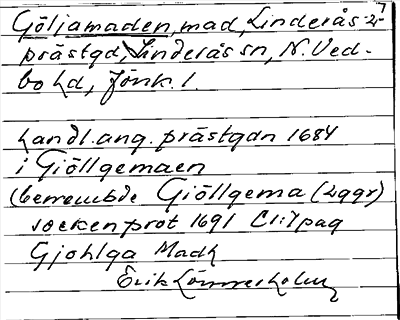 Göljamaden, mad, Linderås 2-7
prästgd, Linderås sn, N. Ved-
bo hd, Jönk. l.
Landl. ang. prästgdn 1684
i Giöllgemaen
(benembde Giöllgema (2 ggr)
socken prot 1691 CI:1 pag
Gjohlga Madh
Erik Lönnerholm